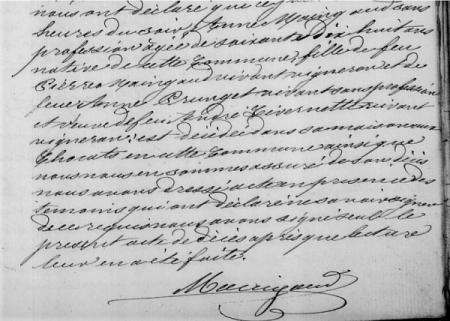 nous ont déclaré que ce
heures du soir, Anne sans
profession agée de soixante dix huit ans
native de cette Commune fille de feu
Pierre vivant vigneron et de
feue Anne vivant sans profession
et veuve de feu vivant
vigneron; est décédée dans sa maison aux
Chocats en cette Commune ainsi que
nous nous en sommes assuré de son décès
nous avons dressé acte en présence des
témoins qui ont déclaré ne savoir signer
de ce requis nous avons signé seul le
présent acte de décès après que lecture
leur en a été faite.